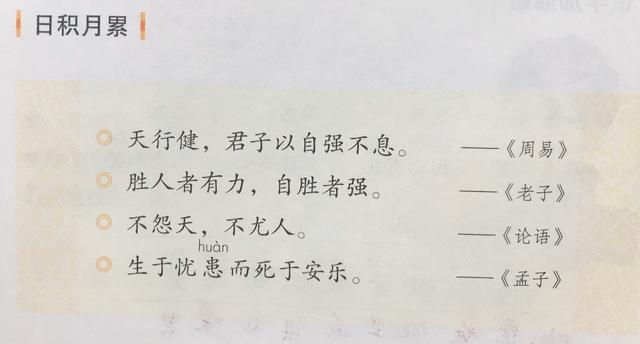 日积月累
天行健，君子以自强不息。 ——《周易》
胜人者有力，自胜者强。 ——《老子》
不怨天，不尤人。 ——《论语》
huàn
生于忧患而死于安乐。 ——《孟子》